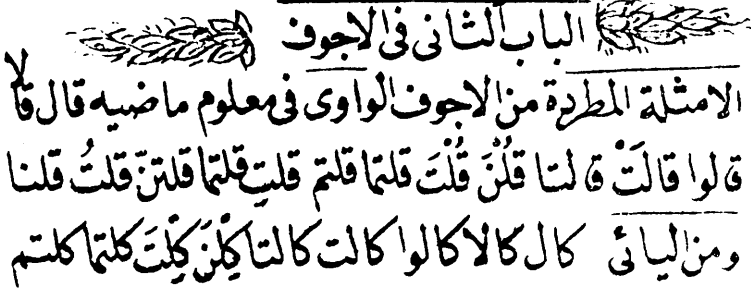 الباب الثانى فى الاجوف
الامثلة المطردة من الاجوف الواوى فى معلوم ماضيه قال قالا
قالوا قالَتْ قالتا قُلْنَ قُلْتَ قلتما قلتم قلتِ قلتما قلتنّ قلتُ قلنا
ومن اليائى كال كالا كالوا كالت كالتا كِلْنَ كِلْتَ كلتما كلتم